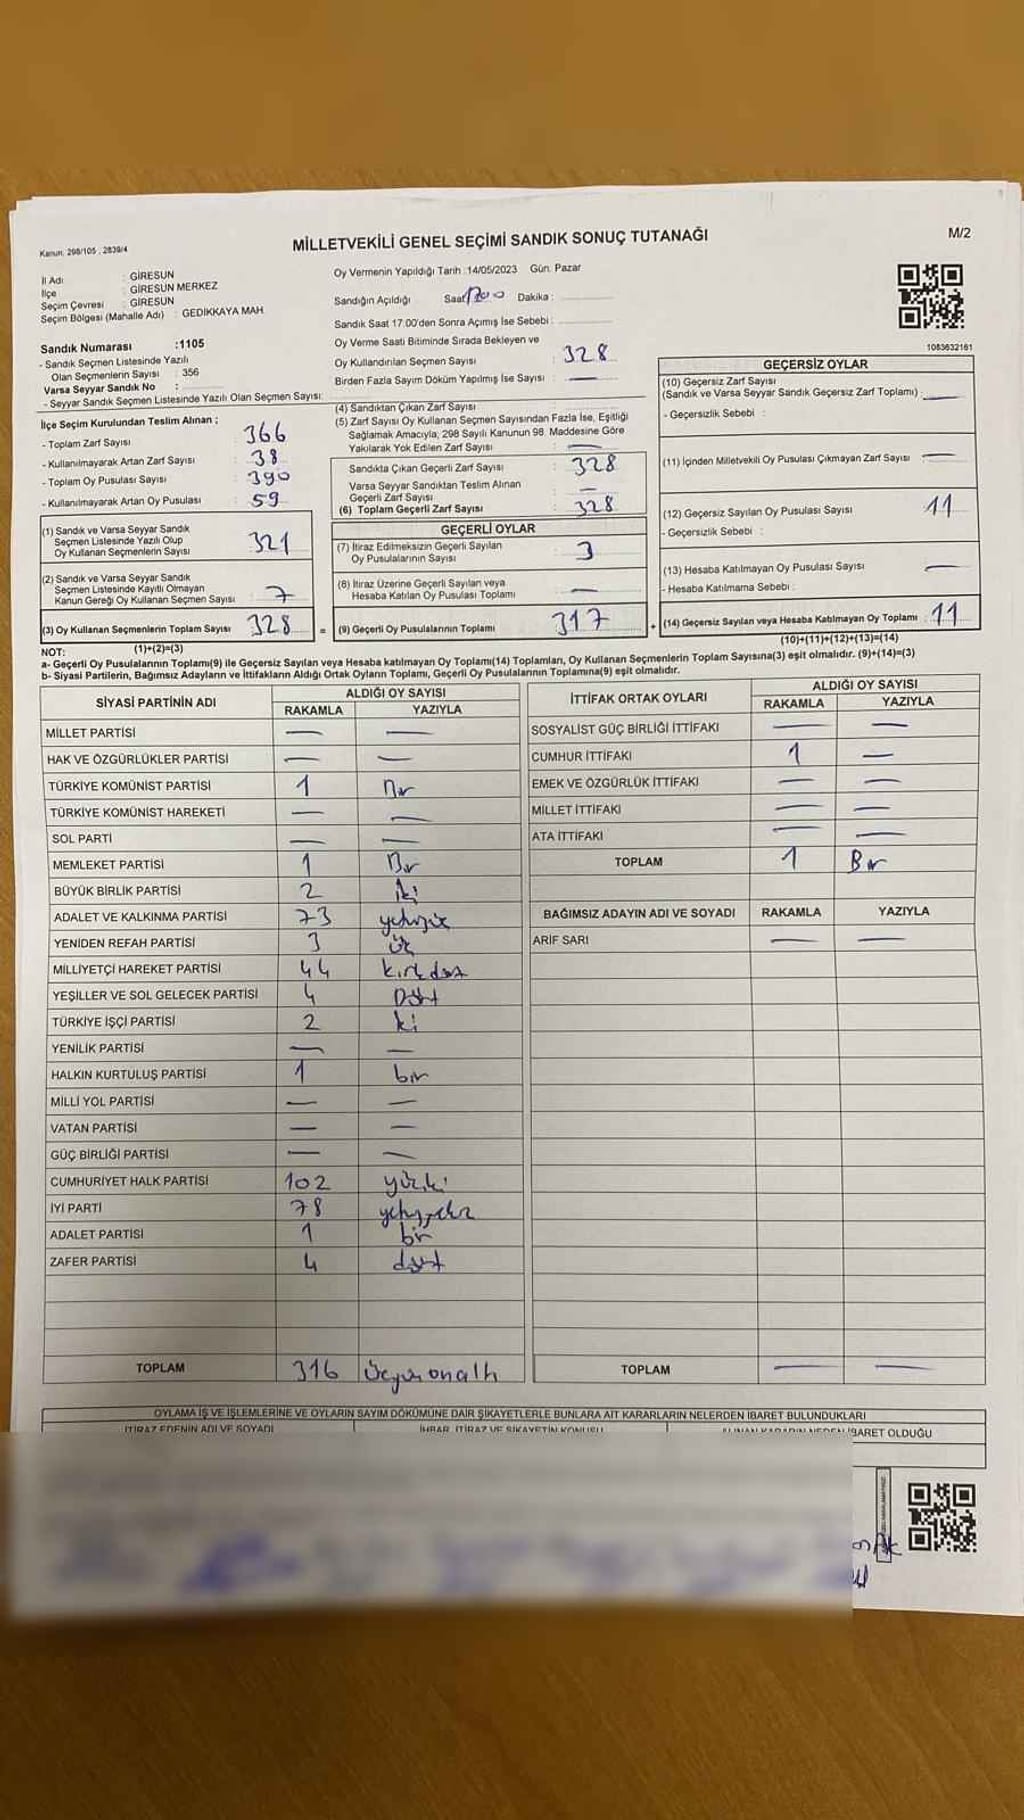 Kanun: 298/105 , 2839/4
MİLLETVEKİLİ GENEL SEÇİMİ SANDIK SONUÇ TUTANAĞI
M/2
İl Adı : GİRESUN
İlçe : GİRESUN MERKEZ
Seçim Çevresi : GİRESUN
Seçim Bölgesi (Mahalle Adı) : GEDİKKAYA MAH
Sandık Numarası :1105
- Sandık Seçmen Listesinde Yazılı
Olan Seçmenlerin Sayısı : 356
Varsa Seyyar Sandık No :
- Seyyar Sandık Seçmen Listesinde Yazılı Olan Seçmen Sayısı:
İlçe Seçim Kurulundan Teslim Alınan ;
- Toplam Zarf Sayısı : 366
- Kullanılmayarak Artan Zarf Sayısı : 38
- Toplam Oy Pusulası Sayısı : 390
- Kullanılmayarak Artan Oy Pusulası : 59
(1) Sandık ve Varsa Seyyar Sandık
Seçmen Listesinde Yazılı Olup
Oy Kullanan Seçmenlerin Sayısı 321
(2) Sandık ve Varsa Seyyar Sandık
Seçmen Listesinde Kayıtlı Olmayan
Kanun Gereği Oy Kullanan Seçmen Sayısı : 7
(3) Oy Kullanan Seçmenlerin Toplam Sayısı 328 =
(1)+(2)=(3)
Oy Vermenin Yapıldığı Tarih :14/05/2023 Gün: Pazar
Sandığın Açıldığı Saat Dakika :
Sandık Saat 17.00'den Sonra Açımış İse Sebebi :
Oy Verme Saati Bitiminde Sırada Bekleyen ve
Oy Kullandırılan Seçmen Sayısı : 328
Birden Fazla Sayım Döküm Yapılmış İse Sayısı : —
(4) Sandıktan Çıkan Zarf Sayısı :
(5) Zarf Sayısı Oy Kullanan Seçmen Sayısından Fazla İse, Eşitliği
Sağlamak Amacıyla, 298 Sayılı Kanunun 98. Maddesine Göre
Yakılarak Yok Edilen Zarf Sayısı : —
Sandıkta Çıkan Geçerli Zarf Sayısı : 328
Varsa Seyyar Sandıktan Teslim Alınan
Geçerli Zarf Sayısı : —
(6) Toplam Geçerli Zarf Sayısı : 328
GEÇERLİ OYLAR
(7) İtiraz Edilmeksizin Geçerli Sayılan
Oy Pusulalarının Sayısı : 3
(8) İtiraz Üzerine Geçerli Sayılan veya
Hesaba Katılan Oy Pusulası Toplamı : —
(9) Geçerli Oy Pusulalarının Toplamı : 317 +
1083632161
GEÇERSİZ OYLAR
(10) Geçersiz Zarf Sayısı
(Sandık ve Varsa Seyyar Sandık Geçersiz Zarf Toplamı) : —
- Geçersizlik Sebebi :
(11) İçinden Milletvekili Oy Pusulası Çıkmayan Zarf Sayısı : —
(12) Geçersiz Sayılan Oy Pusulası Sayısı : 11
- Geçersizlik Sebebi :
(13) Hesaba Katılmayan Oy Pusulası Sayısı : —
- Hesaba Katılmama Sebebi :
(14) Geçersiz Sayılan veya Hesaba Katılmayan Oy Toplamı : 11
(10)+(11)+(12)+(13)=(14)
NOT:
a- Geçerli Oy Pusulalarının Toplamı(9) ile Geçersiz Sayılan veya Hesaba katılmayan Oy Toplamı(14) Toplamları, Oy Kullanan Seçmenlerin Toplam Sayısına(3) eşit olmalıdır. (9)+(14)=(3)
b- Siyasi Partilerin, Bağımsız Adayların ve İttifakların Aldığı Oyların Toplamı, Geçerli Oy Pusulalarının Toplamına(9) eşit olmalıdır.
SİYASİ PARTİNİN ADI ALDIĞI OY SAYISI
RAKAMLA YAZIYLA
MİLLET PARTİSİ — —
HAK VE ÖZGÜRLÜKLER PARTİSİ — —
TÜRKİYE KOMÜNİST PARTİSİ 1 Bir
TÜRKİYE KOMÜNİST HAREKETİ — —
SOL PARTİ — —
MEMLEKET PARTİSİ 1 Bir
BÜYÜK BİRLİK PARTİSİ 2 iki
ADALET VE KALKINMA PARTİSİ 73 yetmişüç
YENİDEN REFAH PARTİSİ 3 üç
MİLLİYETÇİ HAREKET PARTİSİ 44 kırkdört
YEŞİLLER VE SOL GELECEK PARTİSİ 4 Dört
TÜRKİYE İŞÇİ PARTİSİ 2 iki
YENİLİK PARTİSİ — —
HALKIN KURTULUŞ PARTİSİ 1 bir
MİLLİ YOL PARTİSİ — —
VATAN PARTİSİ — —
GÜÇ BİRLİĞİ PARTİSİ — —
CUMHURİYET HALK PARTİSİ 102 yüziki
İYİ PARTİ 78 yetmişsekiz
ADALET PARTİSİ 1 bir
ZAFER PARTİSİ 4 dört
TOPLAM 316 üçyüzonaltı
İTTİFAK ORTAK OYLARI ALDIĞI OY SAYISI
RAKAMLA YAZIYLA
SOSYALİST GÜÇ BİRLİĞİ İTTİFAKI — —
CUMHUR İTTİFAKI 1 —
EMEK VE ÖZGÜRLÜK İTTİFAKI — —
MİLLET İTTİFAKI — —
ATA İTTİFAKI — —
TOPLAM 1 Bir
BAĞIMSIZ ADAYIN ADI VE SOYADI RAKAMLA YAZIYLA
ARİF SARI — —
TOPLAM — —
OYLAMA İŞ VE İŞLEMLERİNE VE OYLARIN SAYIM DÖKÜMÜNE DAİR ŞİKAYETLERLE BUNLARA AİT KARARLARIN NELERDEN İBARET BULUNDUKLARI
İTİRAZ EDENİN ADI VE SOYADI İHBAR, İTİRAZ VE ŞİKAYETİN KONUSU ALINAN KARARIN NEDEN İBARET OLDUĞU